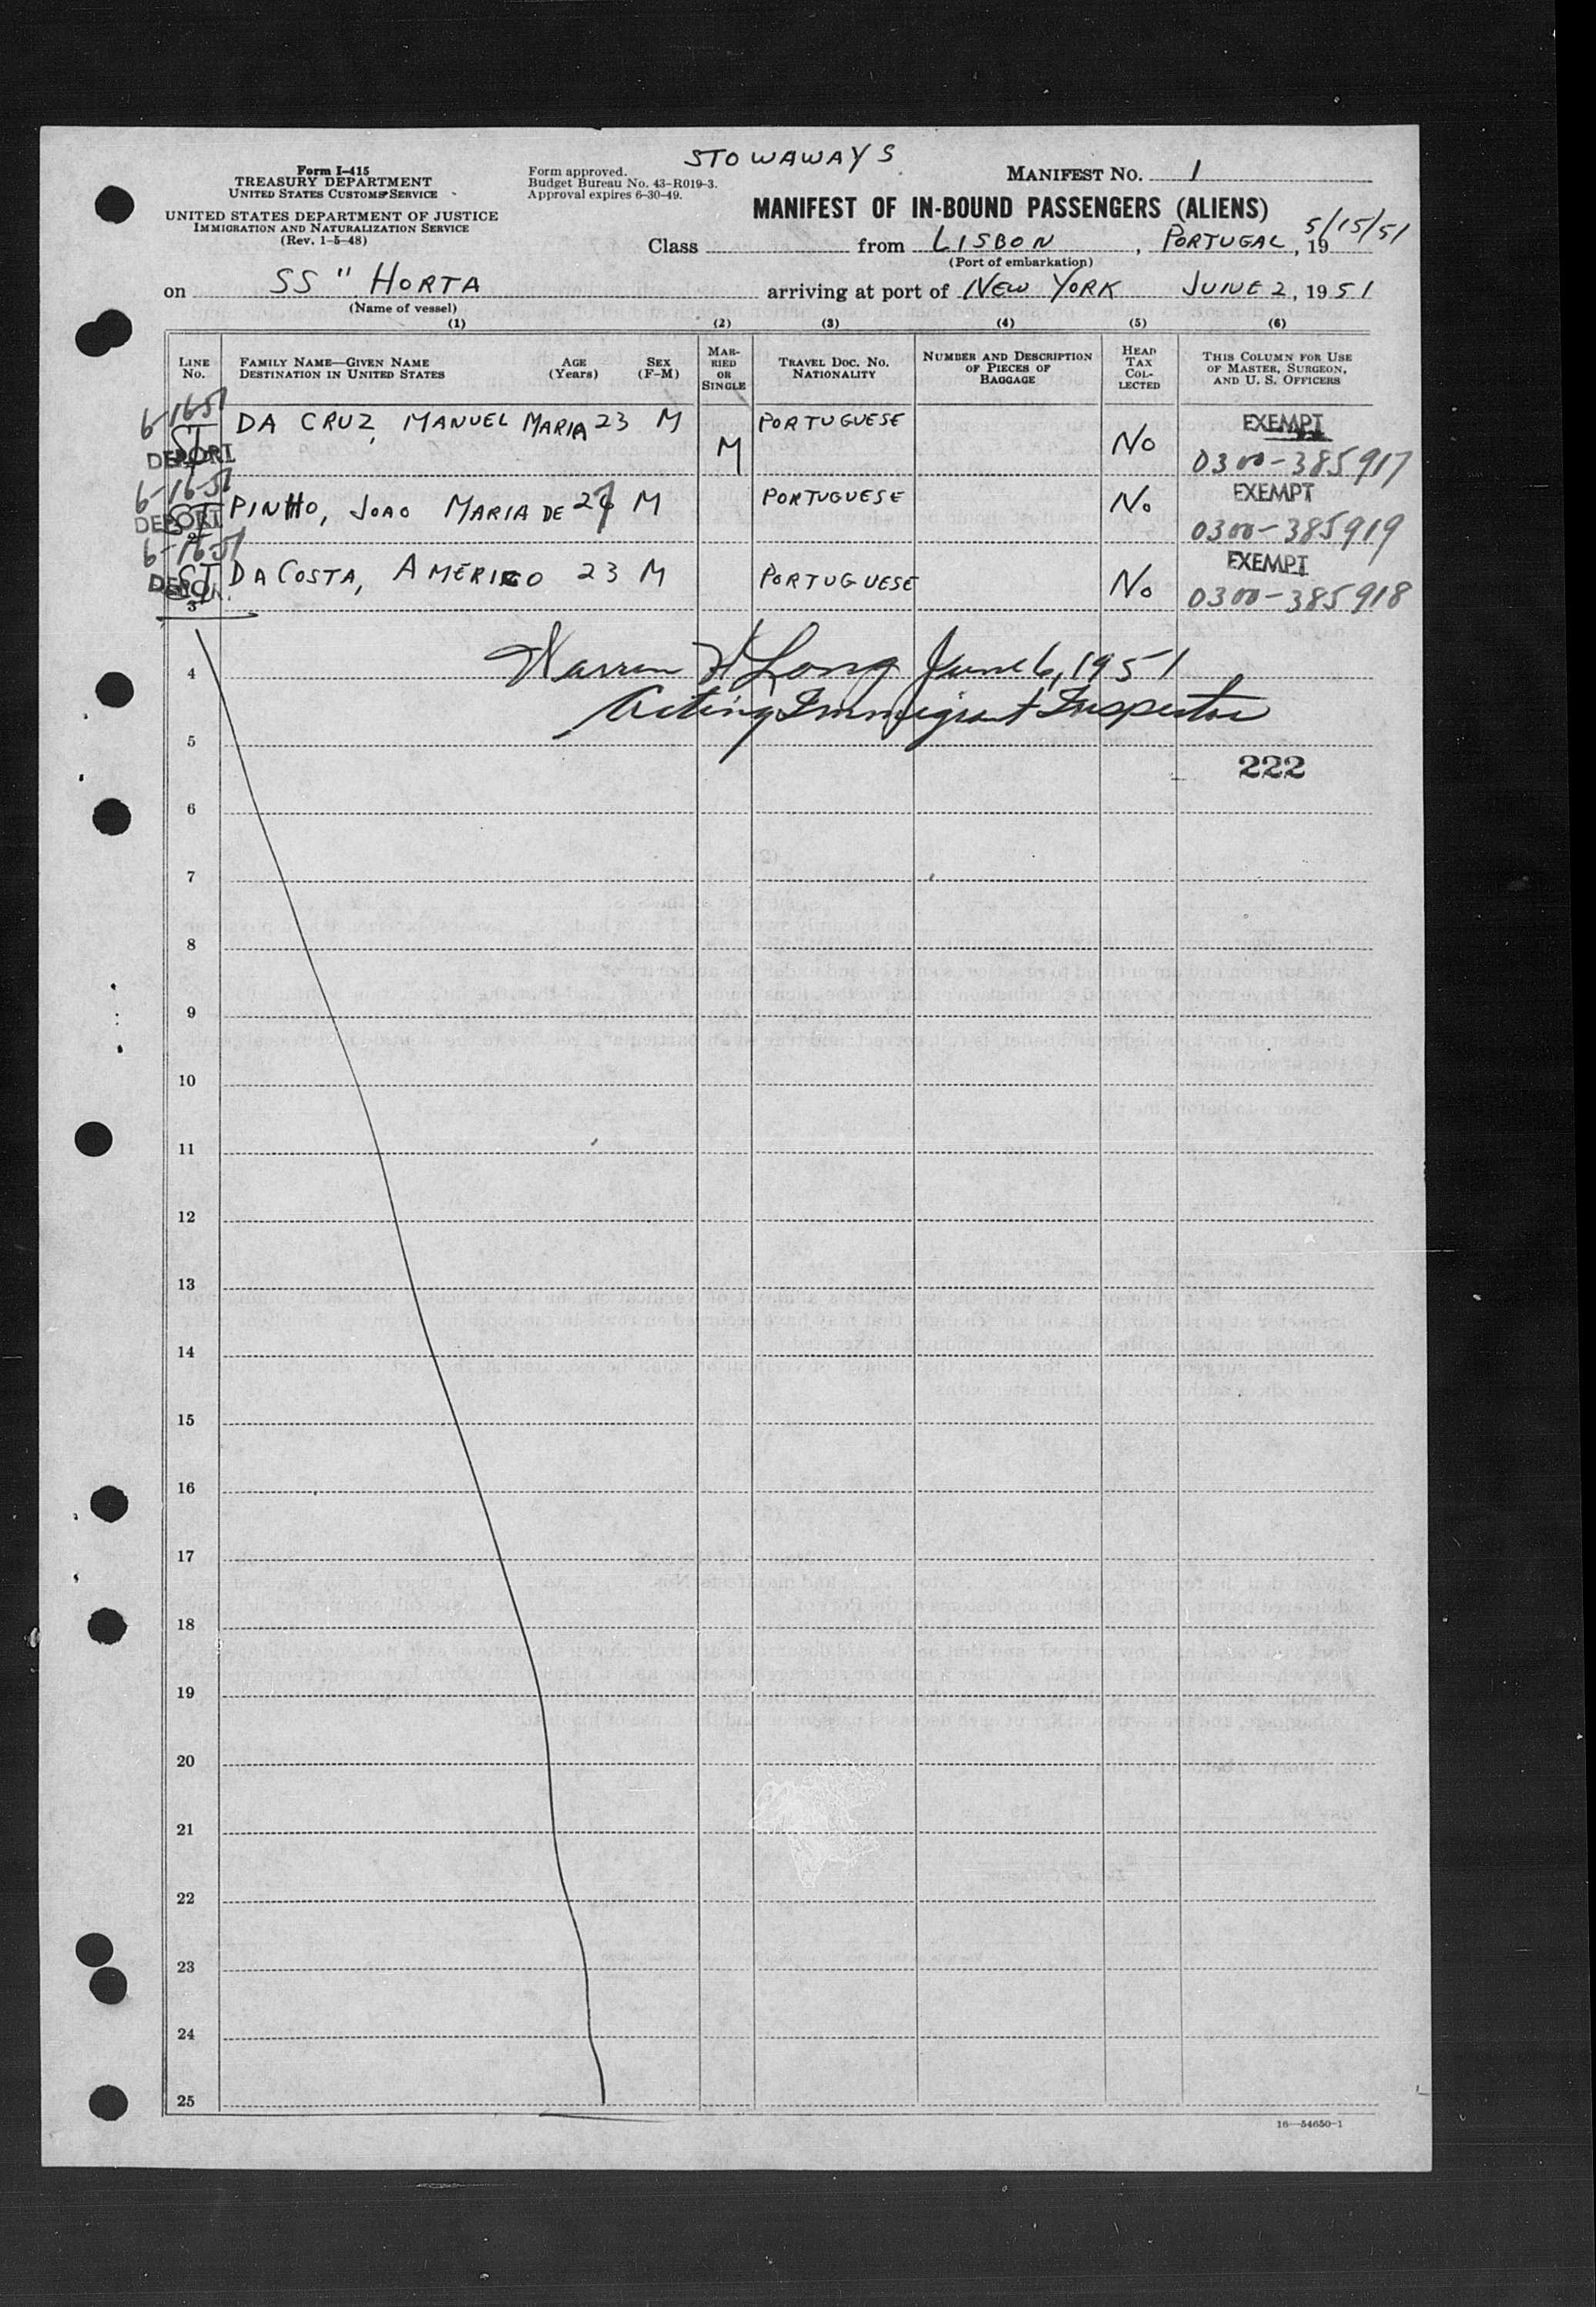 STOWAWAYS
Form I-415
TREASURY DEPARTMENT
UNITED STATES CUSTOMS SERVICE
UNITED STATES DEPARTMENT OF JUSTICE
IMMIGRATION AND NATURALIZATION SERVICE
(Rev. 1-5-48)
Form approved.
Budget Bureau No. 43-R019-3.
Approval expires 6-30-49.
MANIFEST No. 1
MANIFEST OF IN-BOUND PASSENGERS (ALIENS)
Class from LISBON, PORTUGAL, 19 5/15/51
(Port of embarkation)
on SS " HORTA arriving at port of NEW YORK JUNE 2, 1951
(Name of vessel)
(1) (2) (3) (4) (5) (6)
LINE No.
FAMILY NAME—GIVEN NAME
DESTINATION IN UNITED STATES
AGE (Years)
SEX (F-M)
MARRIED OR SINGLE
TRAVEL DOC. NO.
NATIONALITY
NUMBER AND DESCRIPTION OF PIECES OF BAGGAGE
HEAD TAX COLLECTED
THIS COLUMN FOR USE OF MASTER, SURGEON, AND U. S. OFFICERS
6-16-51 ST DEPORT DA CRUZ, MANUEL MARIA 23 M M PORTUGUESE No EXEMPT
0300-385917
6-16-51 ST DEPORT 2 PINHO, JOAO MARIA DE M PORTUGUESE No EXEMPT
0300-385919
6-16-51 ST 3 DA COSTA, AMERICO 23 M PORTUGUESE No EXEMPT
0300-385918
4 Warren H Long June 6, 1951
Acting Immigrant Inspector
5
222
6
7
8
9
10
11
12
13
14
15
16
17
18
19
20
21
22
23
24
25
16—54650-1